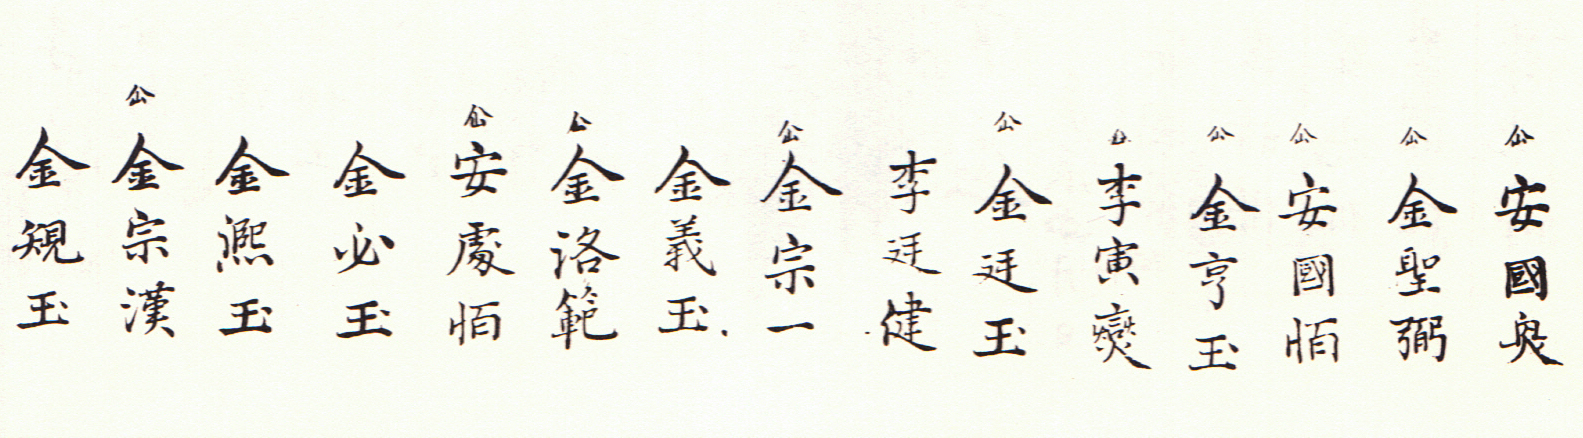 公 安國奐
公 金聖弼
公 安國恒
公 金亨玉
公 李寅燮
公 金廷玉
李廷健
公 金宗一
金義玉
公 金洛範
公 安處恒
金必玉
金凞玉
公 金宗漢
金規玉